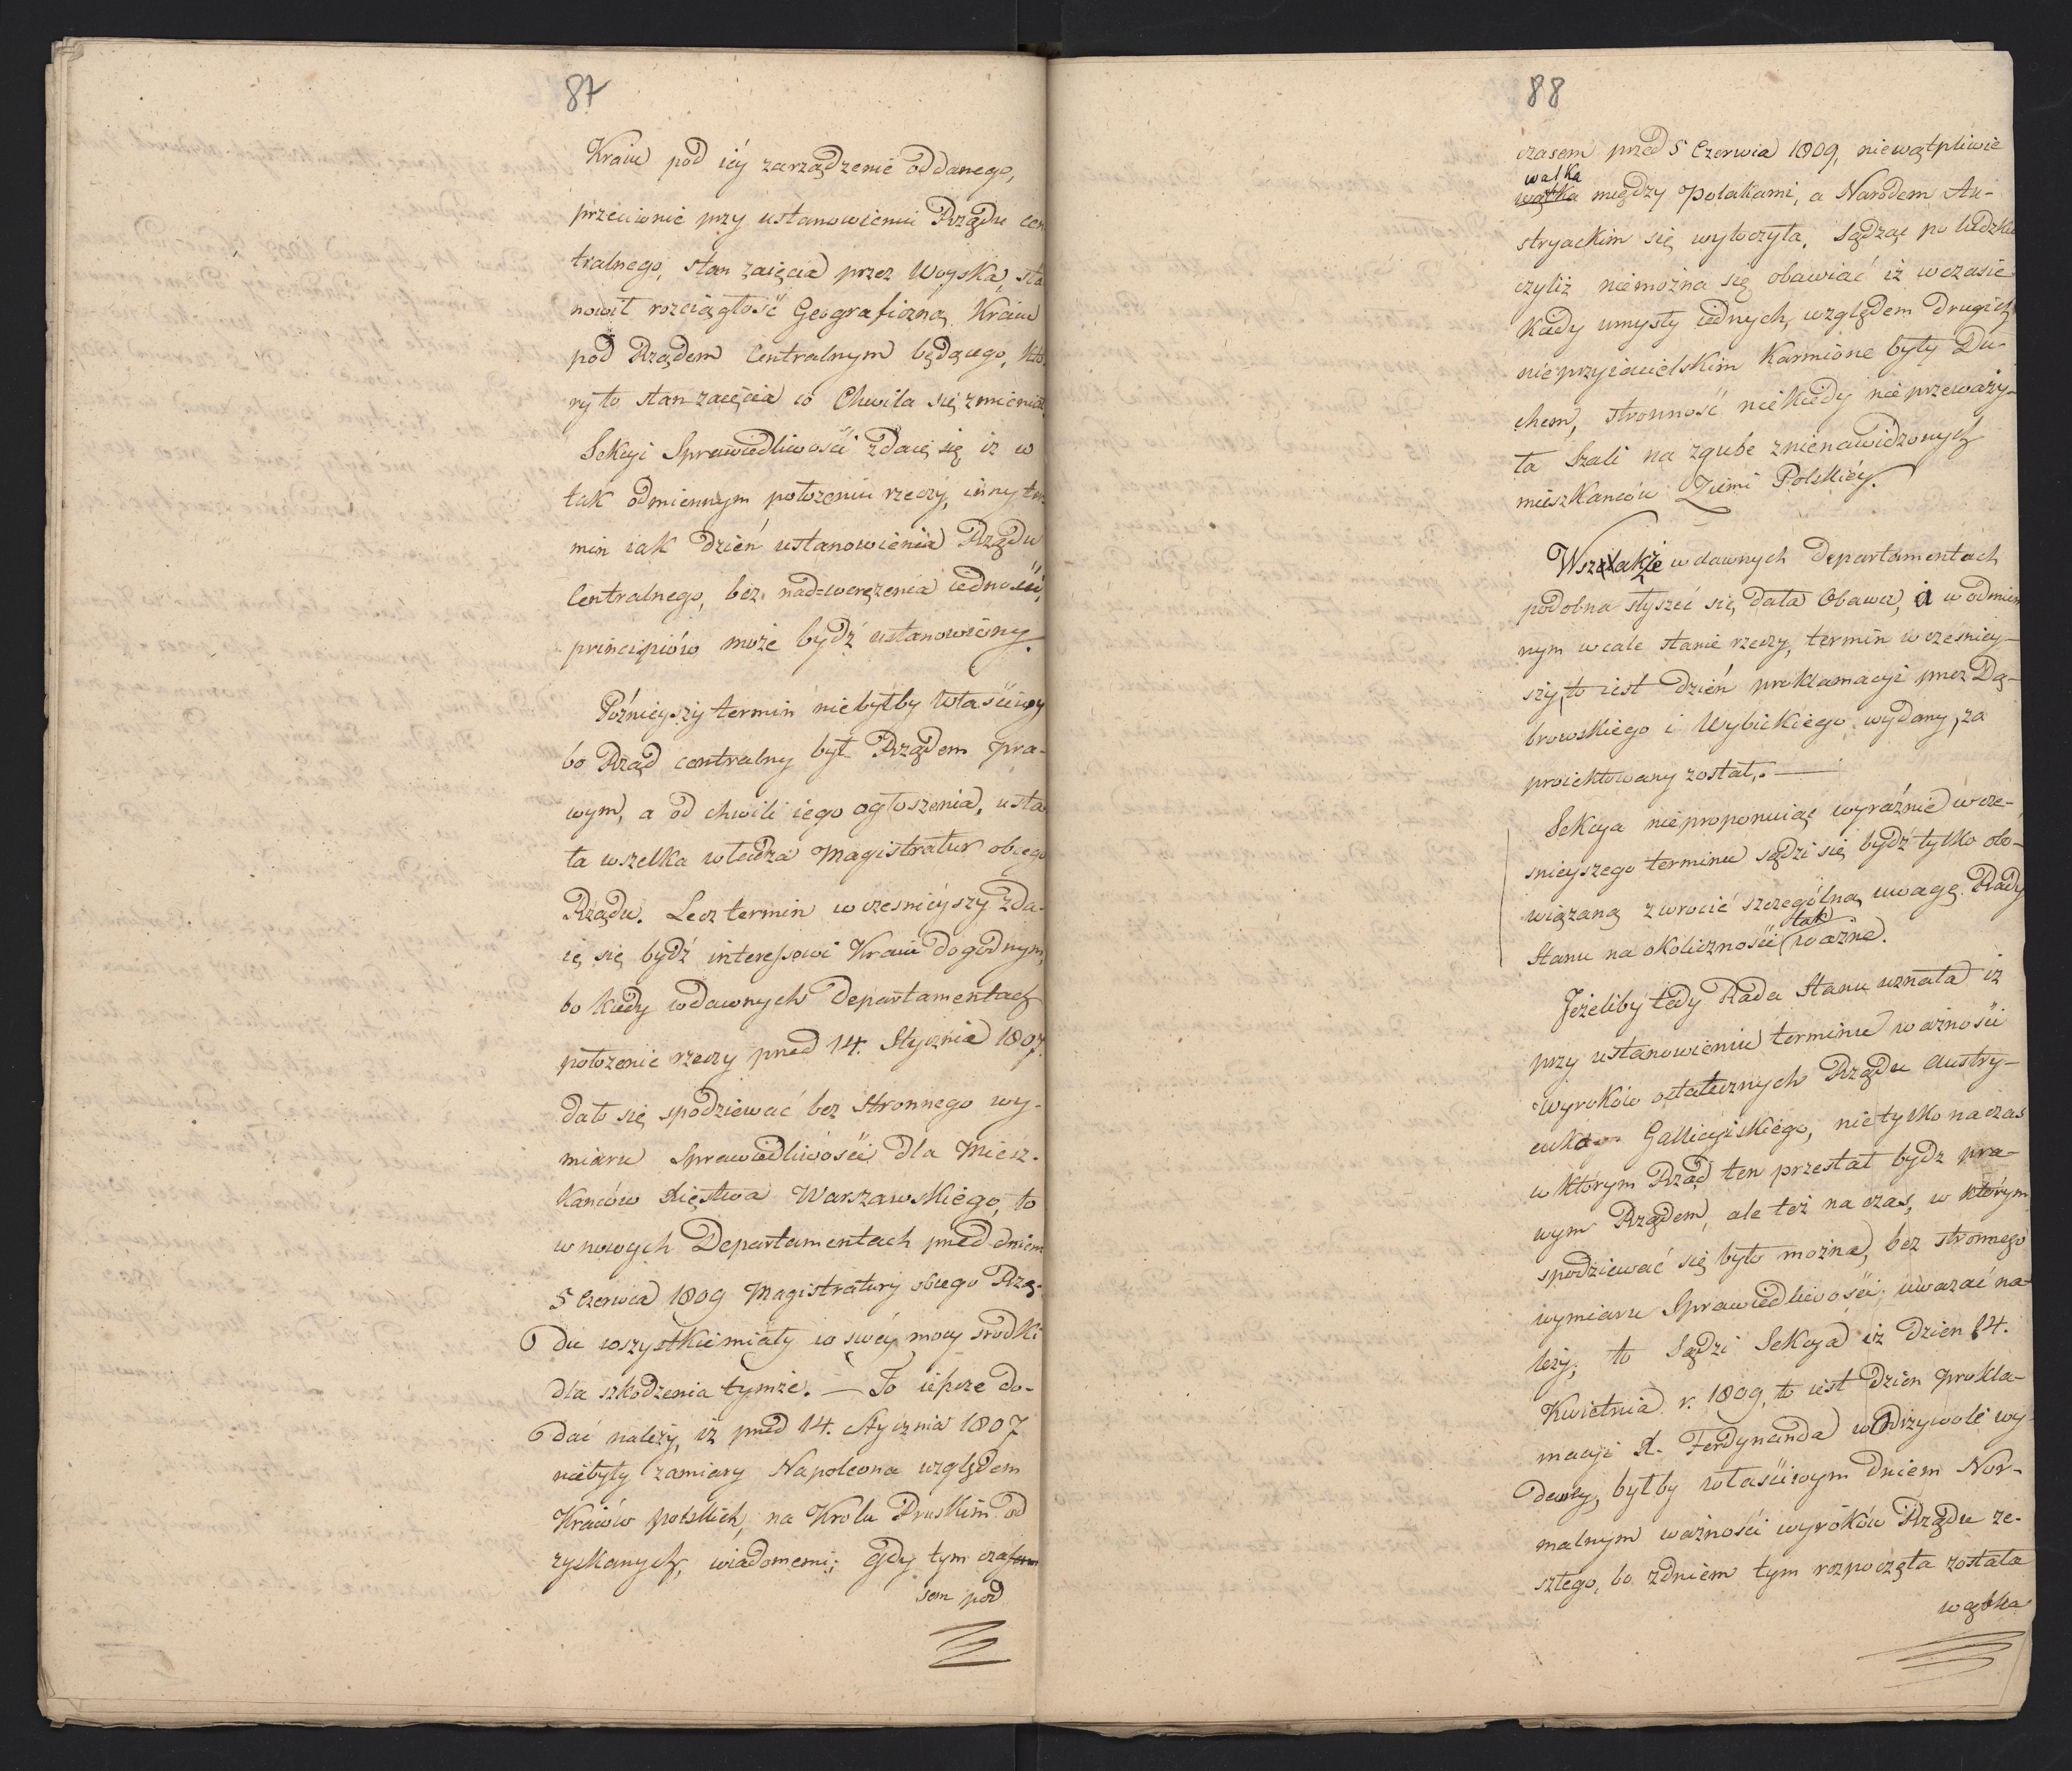 87
Kraiu pod iéy zarządzenie oddanego,
przeciwnie przy ustanowieniu Rządu cen
tralnego, stan zaięcia przez Woyska, sta
nowił rozciągłość Geograficzną Kraiu
pod Rządem Centralnym będącego, któ
ry to stan zaięcia co Chwila się zmieniał
Sekcyi Sprawiedliwości zdaie się iż w
tak odmiennym położeniu rzeczy, inny ter
min iak dzień ustanowienia Rządu
Centralnego, bez nadwerężenia iedności,
principiów może bydź ustanowiony.
Poźnieyszy termin niebyłby właściwy
bo Rząd centralny był Rządem pra-
wym, a od chwili iego ogłoszenia, usta
ła wszelka władza Magistratur obcego
Rządu. Lecz termin wcześnieyszy zda-
ie się bydź interessowi Kraiu dogodnym,
bo kiedy w dawnych Departamentach
położenie rzeczy przed 14. Stycznia 1807.
dało się spodziewać bez stronnego wy-
miaru Sprawiedliwości dla Miesz-
kańców Xięstwa Warszawskiego, to
w nowych Departamentach przed dniem
5 Czerwca 1809 Magistratury obcego Rzą-
du wszystkie miały w swéy mocy środki
dla szkodzenia tymże. — To ieszcze do-
dać należy, iż przed 14. Stycznia 1807
niebyły zamiary Napoleona względem
Kraiów polskich, na Królu Pruskim od
zyskanych, wiadomemi; gdy tym czasem
sem pod
88
czasem przed 5 Czerwia 1809, niewątpliwie
walka
wątka między Polakami, a Narodem Au-
stryackim się wytoczyła. Sądząc po ludzku
czyliż niemożna się obawiać iż w czasie
kiedy umysły iednych, względem drugich
nieprzyiacielskim karmione były Du-
chem, stronność niekiedy nie przeważy-
ła Szali na zgubę znienawidzonych
mieszkańców Ziemi Polskiéy.
Wszakże w dawnych Departamentach
podobna słyszeć się dała Obawa, i w odmien
nym wcale stanie rzeczy, termin wcześniey-
szy, to iest dzień proklamacyi przez Dą-
browskiego i Wybickiego wydany, za
proiektowany został. —
Sekcya nieproponuiąc wyraźnie wcze-
snieyszego terminu sądzi się bydź tylko obo-
wiązaną zwrócić szczególną uwagę Rady
Stanu na okoliczności tak ważne.
Jeżeliby tedy Rada Stanu uznała iż
przy ustanowieniu terminu ważności
wyroków ostatecznych Rządu Austry-
acko Gallicyiskiego, nietylko na czas
w którym Rząd ten przestał bydz pra-
wym Rządem, ale też na czas, w którym
spodziewać się było można, bez stronnego
wymiaru Sprawiedliwości, uważać na-
leży; to Sądzi Sekcya iż dzień 14.
Kwietnia r. 1809, to iest dzień prokla-
macyi A. Ferdynanda w Odrzywole wy
daney, byłby właściwym dniem Nor-
malnym ważności wyroków Rządu ze-
szłego, bo z dniem tym rozpoczęta została
wątka